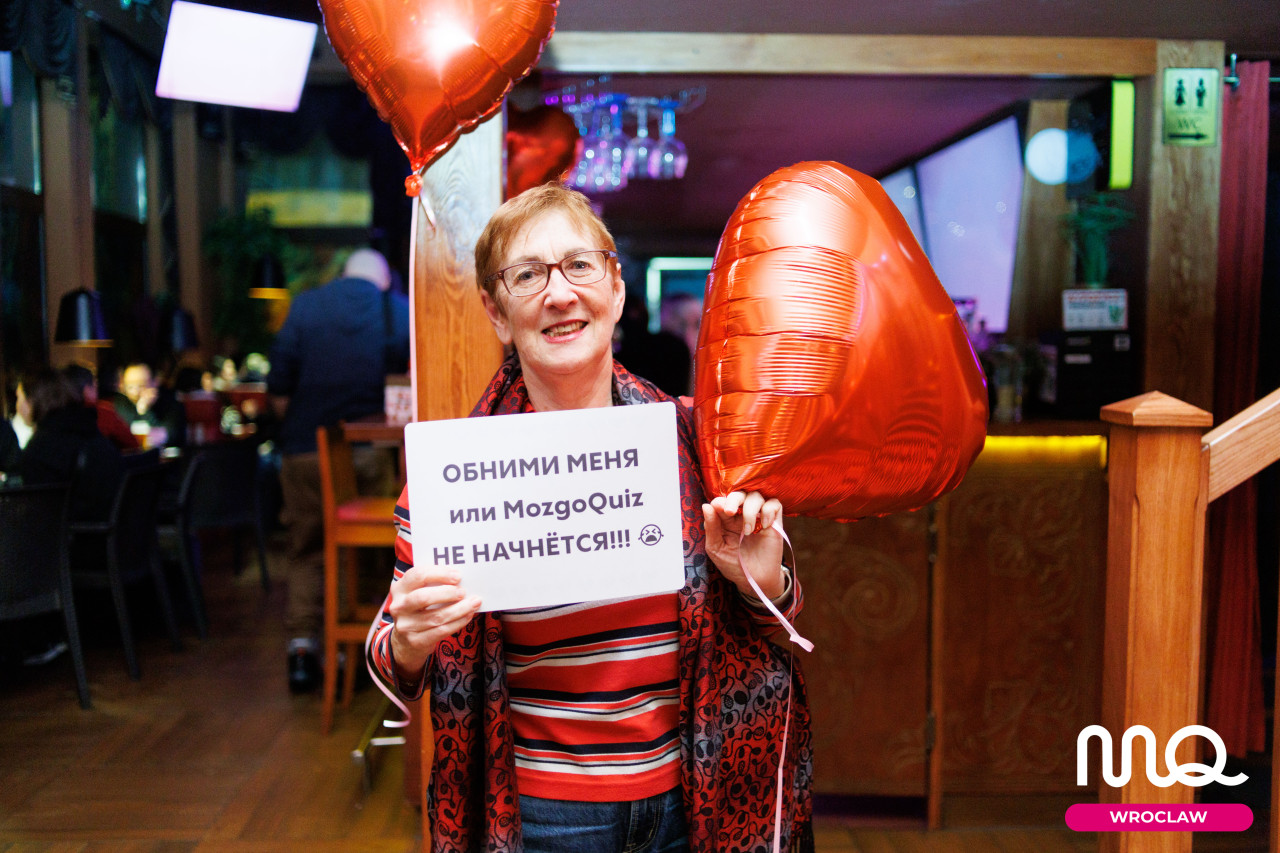 WC
ОБНИМИ МЕНЯ
или MozgoQuiz
НЕ НАЧНЁТСЯ!!! 😭
MQ
WROCLAW